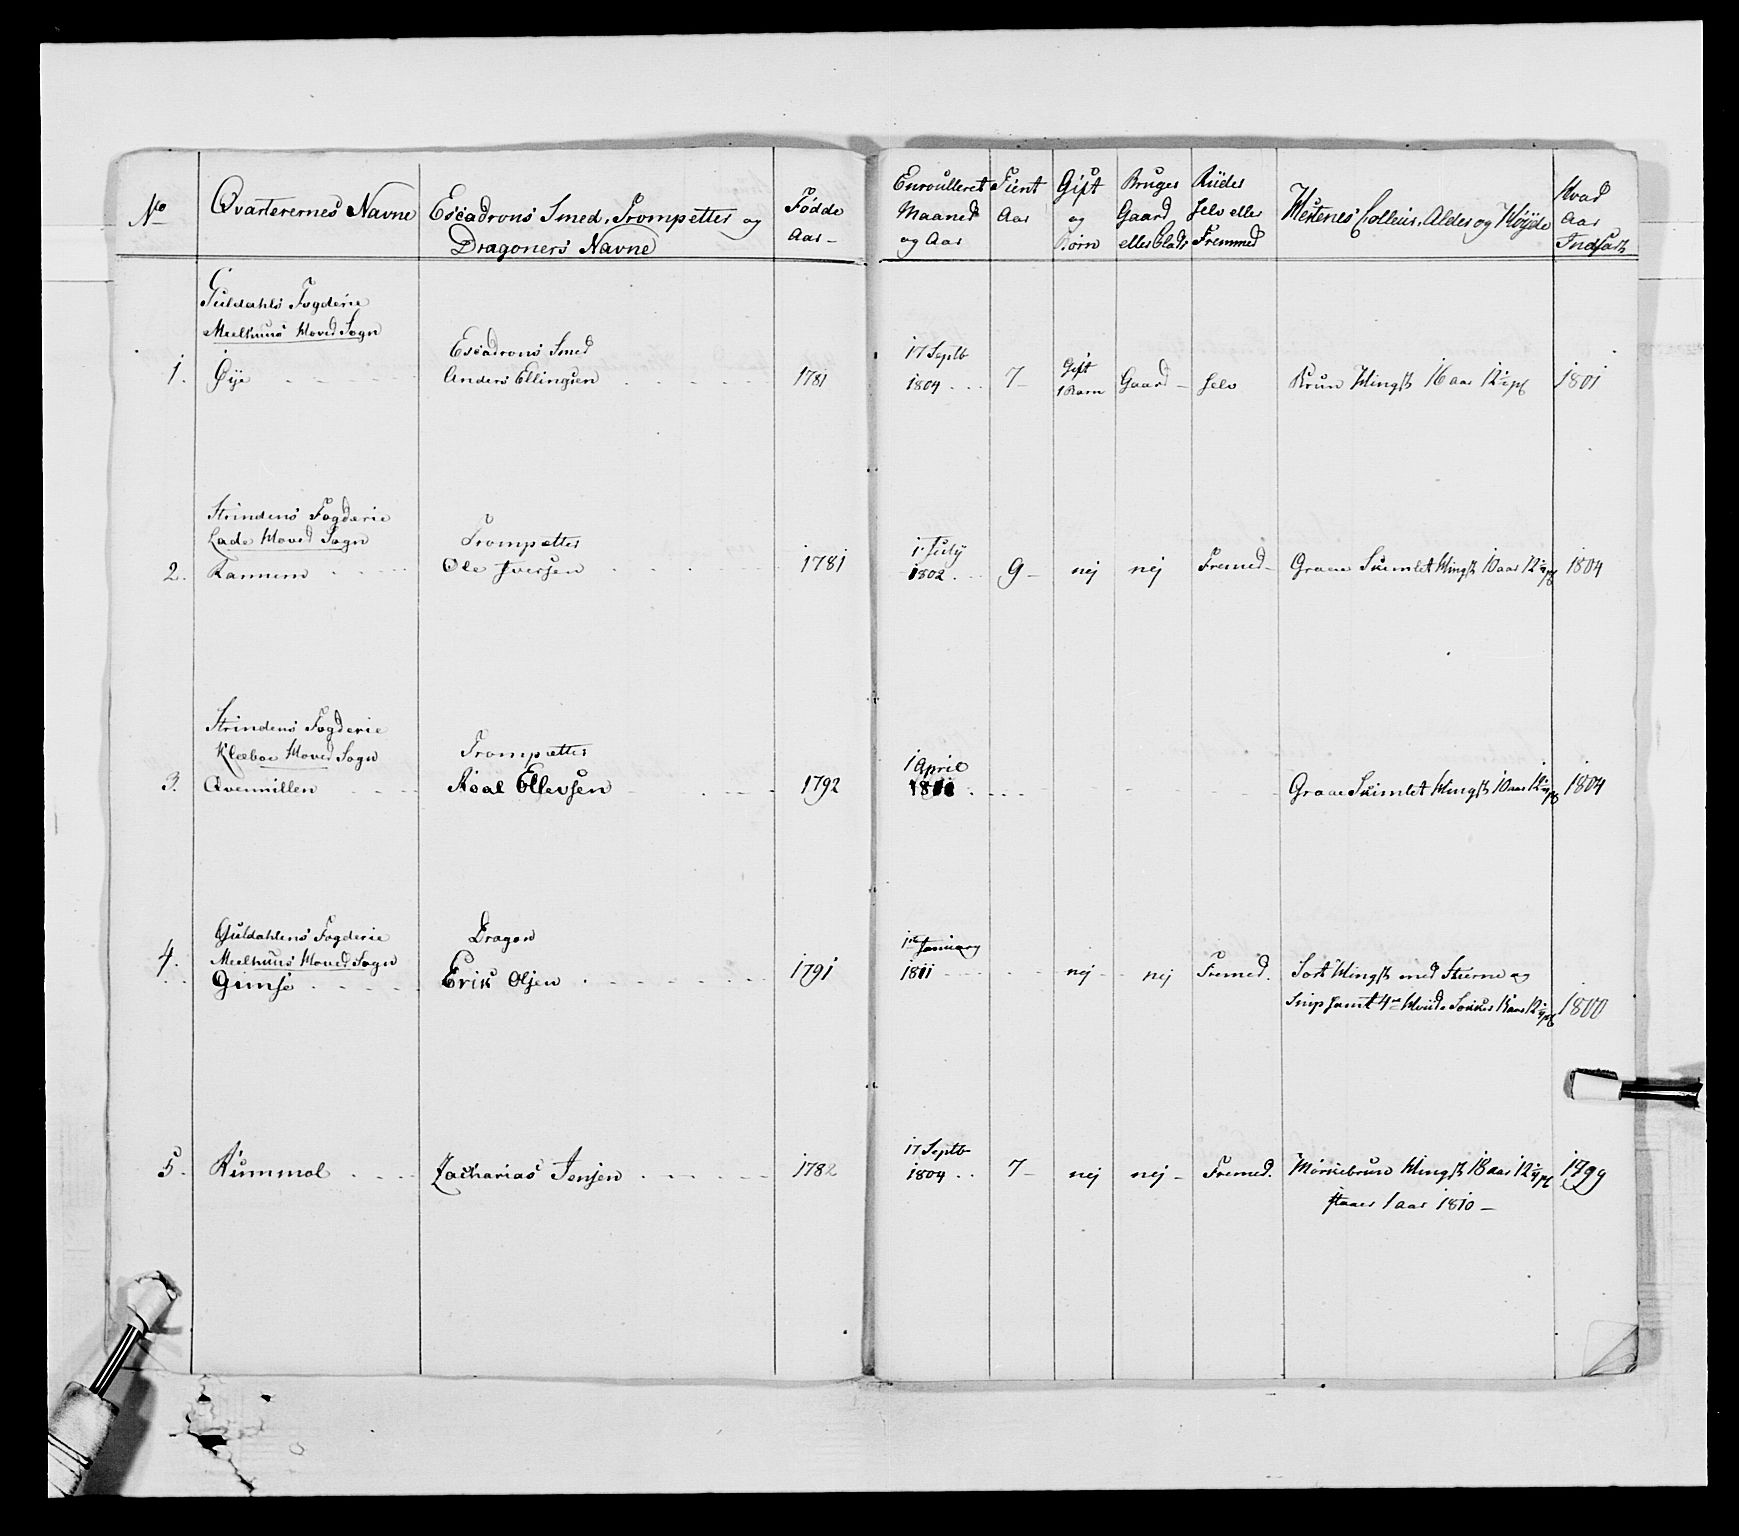 No
Qvarterernes Navne
Escadrons Smed, Trompetter og
Dragoners Navne
Fødde
Aar
Enroulleret
Maaned
og Aar
Tient
Aar
Gift
og
Børn
Bruger
Gaard
eller Plads
Riider
selv eller
Fremmed
Hestenes Colleur, Alder og Høyde
Hvad
Aar
Indsatt
Guldahls Fogderie
Meelhuus Hoved Sogn
1. Øye
Escadrons Smed
Anders Ellingsen
1781
17 Septb
1804
7
Gift
1 Barn
Gaard
selv
Brun Hingst 16 aar 12
1801
Strindens Fogderie
Lade Hoved Sogn
2. Rannem
Trompetter
Ole Iversen
1781
1 July
1802
9
nej
nej
Fremed
Graae Skimlet Hingst 10 aar 12
1804
Strindens Fogderie
Klæboe Hoved Sogn
3. Qvenmillen
Trompetter
Ellevsen
1792
1 April
1811
Graae Skimlet Hingst 10 aar 12
1804
Guldahlens Fogderie
Meelhuus Hoved Sogn
4. Gimse
Dragon
Erik Olsen
1791
1 January
1811
nej
nej
Fremed
Sort Hingst med Stierne og
Snip samt 4 Hviide Sokker 12
1800
5. Kummol
Zacharias Jensen
1782
17 Septb
1804
7
nej
nej
Fremed
Mørkebrun Hingst 18 aar 12
staaer 1 aar 1810
1799